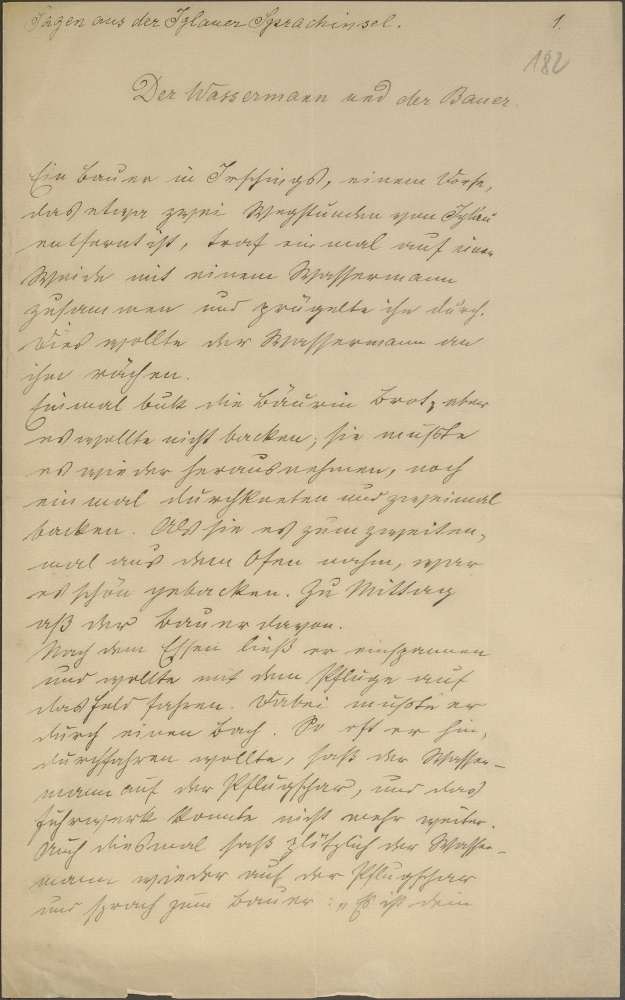 Sagen aus der Iglauer Sprachinsel. 1.
182
Der Wassermann und der Bauer.
Ein Bauer in Irschings, einem Dorfe,
das etwa zwei Wegstunden von Iglau
entfernt ist, traf einmal auf einer
Weide mit einem Wassermann
zusammen und prügelte ihn durch.
Dies wollte der Wassermann an
ihm rächen.
Einmal buk die Bäurin Brot, aber
es wollte nicht backen; sie mußte
es wieder herausnehmen, noch
einmal durchkneten und zweimal
backen. Als sie es zum zweiten-
mal aus dem Ofen nahm, war
es schön gebacken. Zu Mittag
aß der Bauer davon.
Nach dem Essen ließ er einspannen
und wollte mit dem Pfluge auf
das Feld fahren. Dabei mußte er
durch einen Bach. So oft er hin-
durchfahren wollte, saß der Wasser-
mann auf der Pflugschar, und das
Fuhrwerk konnte nicht mehr weiter.
Auch diesmal saß plötzlich der Wasser-
mann wieder auf der Pflugschar
und sprach zum Bauer: „Es ist dein